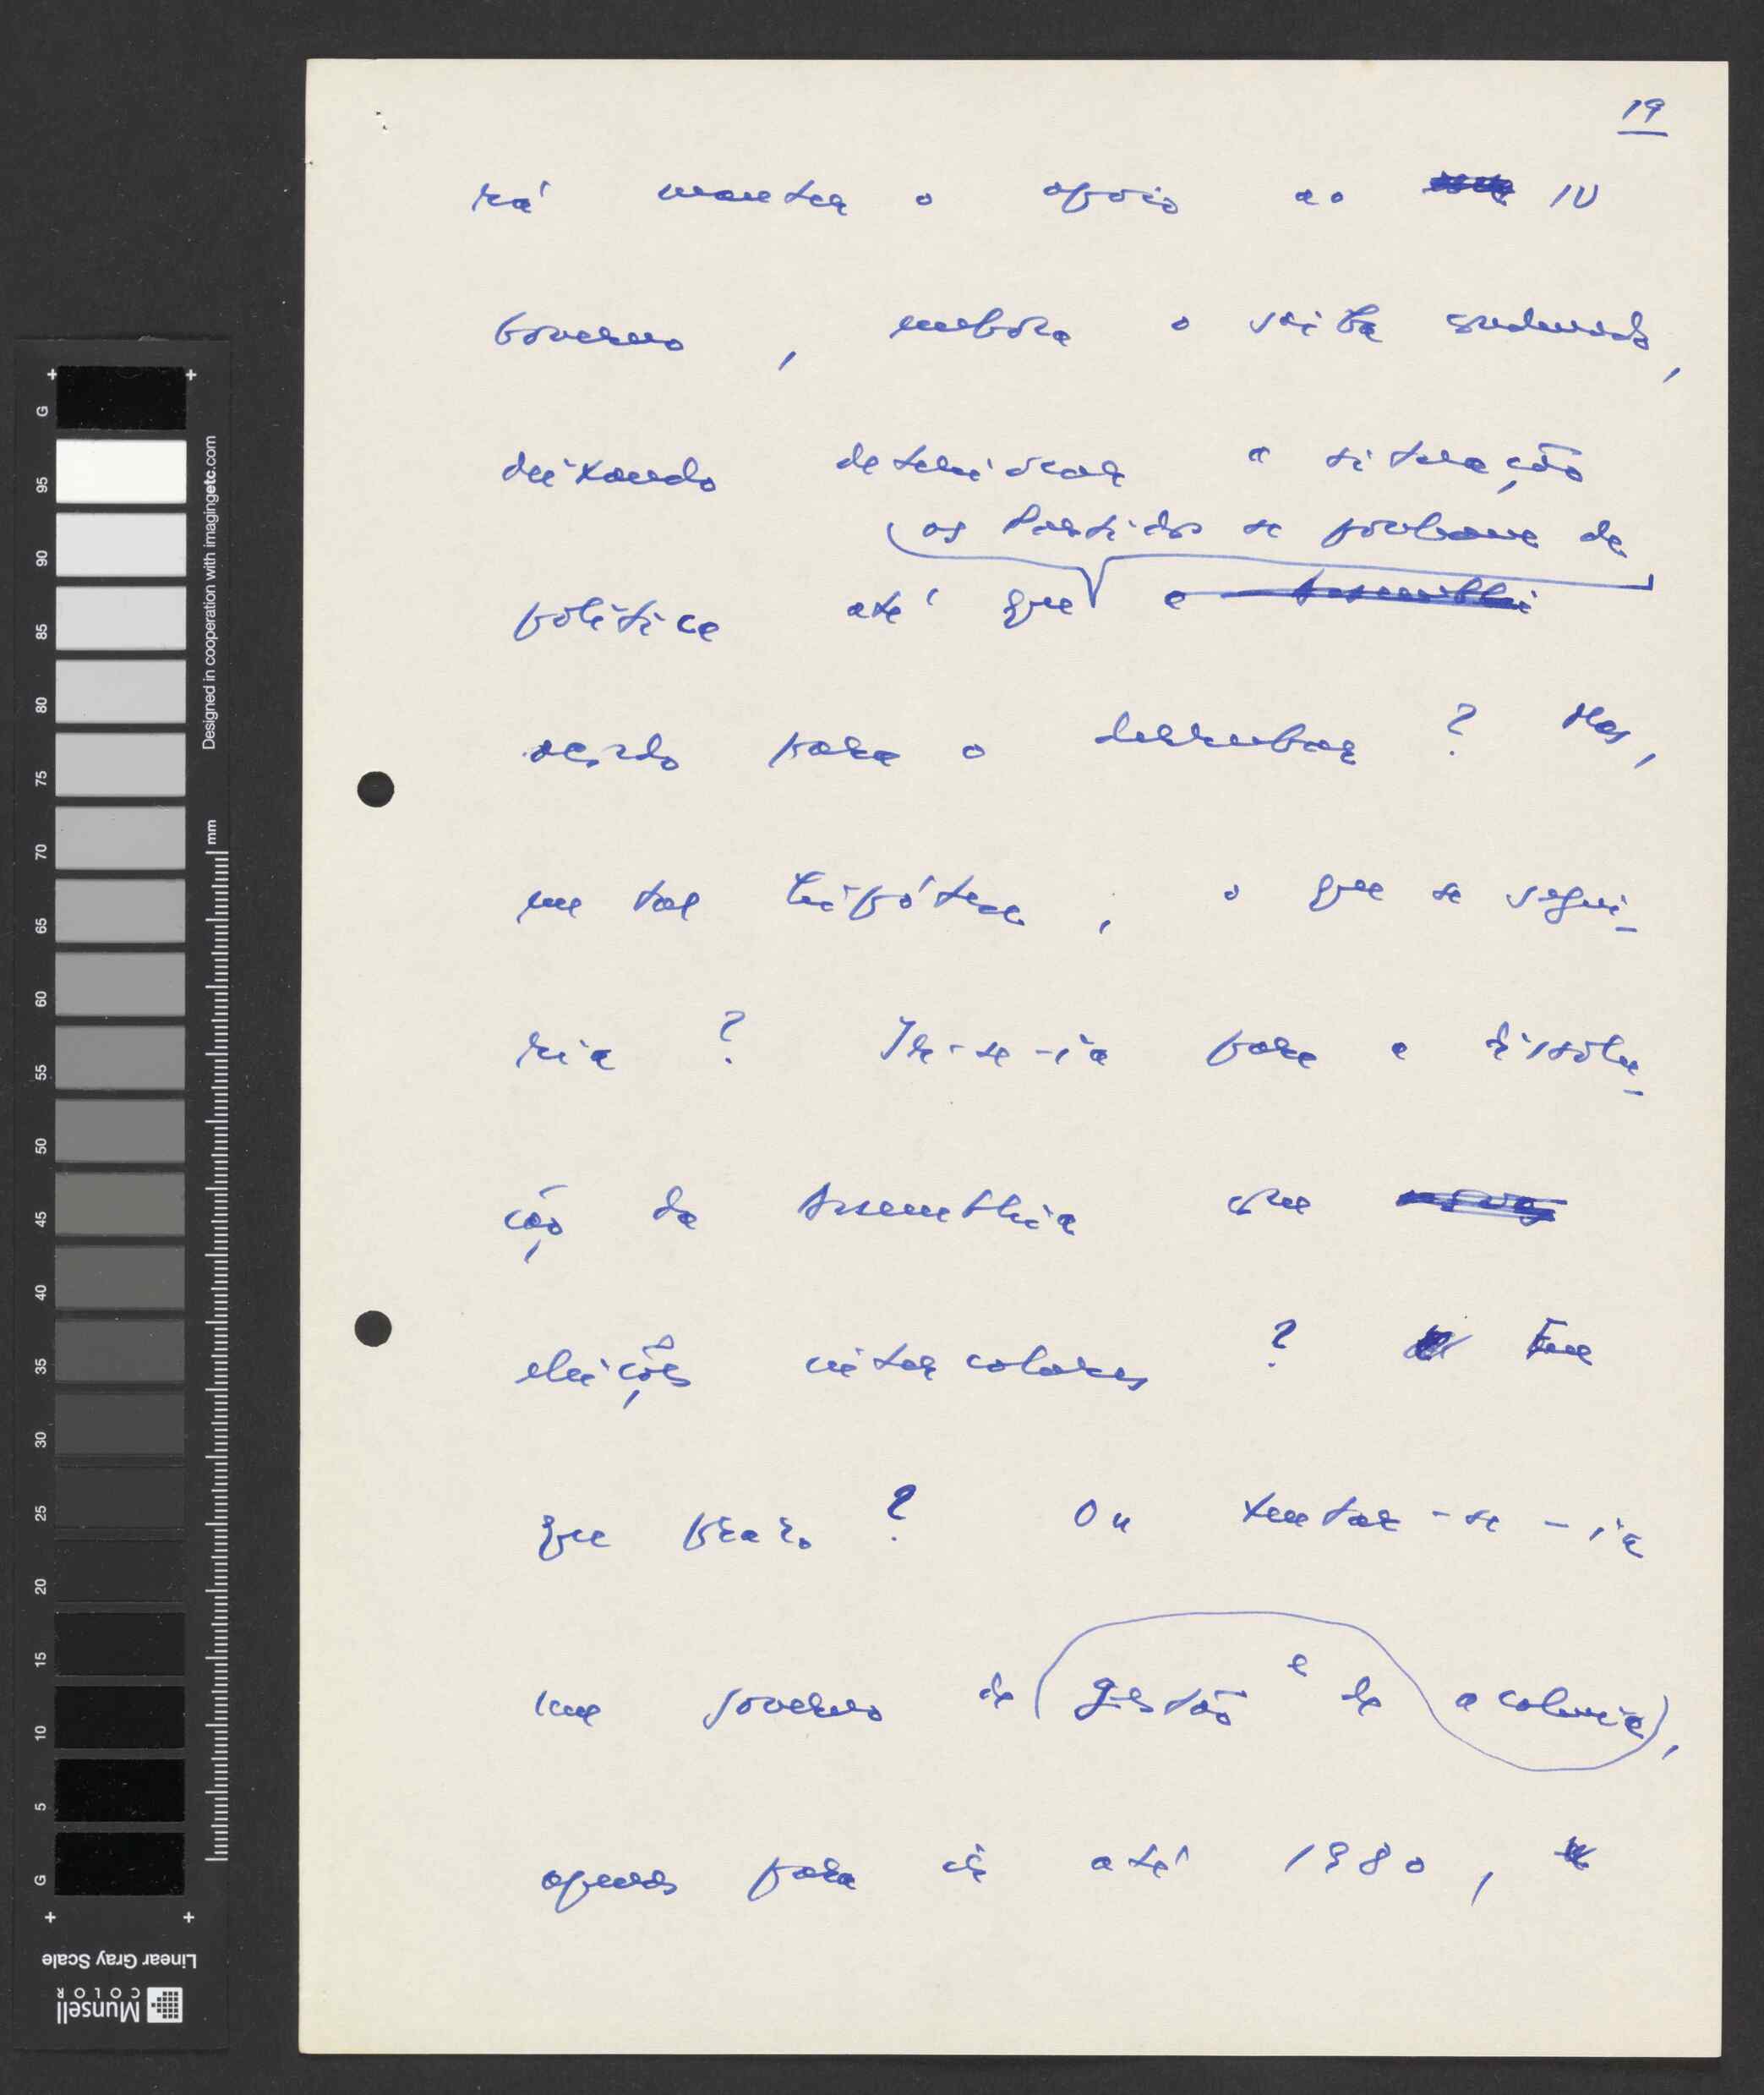 19
rá manter o apoio ao IV
Governo, embora o saiba queimado,
deixando deteriorar a situação
os Partidos se ponham de
política até que a Assemblei
acordo para o derrubar? Mas,
em tal hipótese, o que se segui-
ria? Ir-se-ia para a dissolu-
ção da Assembleia com
eleições intercalares? Em
que prazo? Ou tentar-se-ia
um governo de (gestão e de acalmia),
apenas para ir até 1980,
G
95
90
85
80
75
70
65
60
55
50
45
40
35
30
25
20
15
10
5
G
Designed in cooperation with imagingetc.com
mm
Linear Gray Scale
Munsell
COLOR